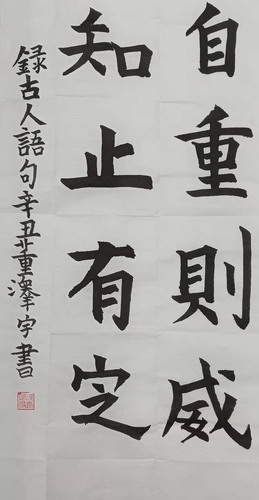 自重則威
知止有定
録古人語句辛丑董澤宇書